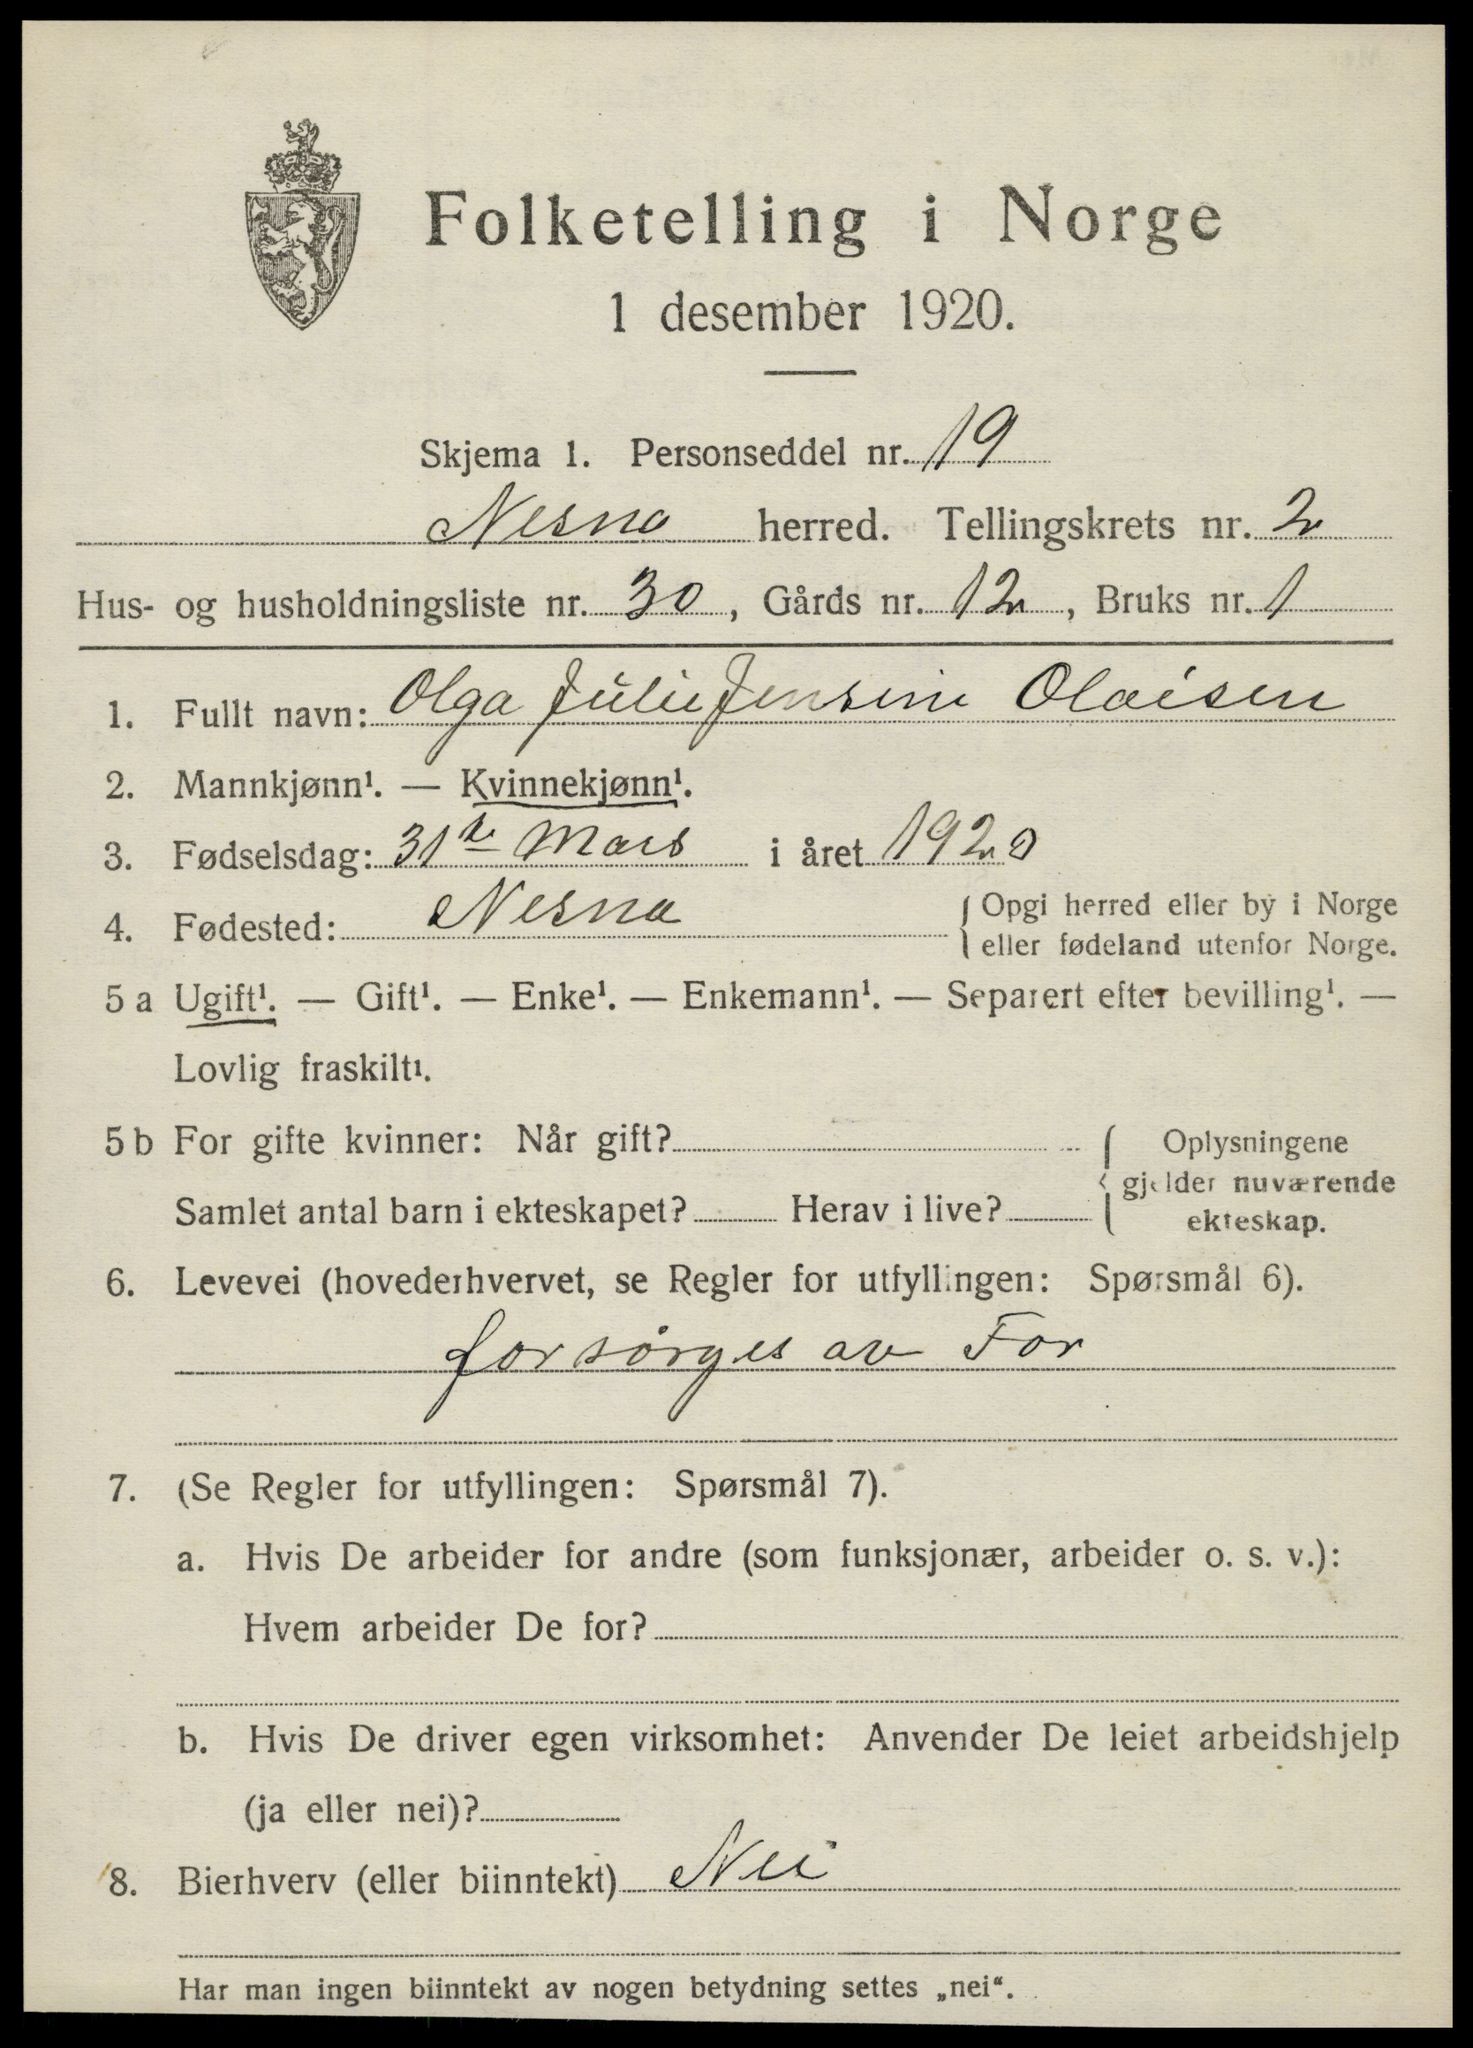 Folketelling i Norge
1 desember 1920.
Skjema 1. Personseddel nr. 19
Nesna herred. Tellingskrets nr. 2
Hus- og husholdningsliste nr. 30, Gårds nr. 12, Bruks nr. 1
1. Fullt navn: Olga Julie Jensine Olaisen
2. Mannkjønn¹. — Kvinnekjønn¹.
3. Fødselsdag: 31te Mars i året 1920
4. Fødested: Nesna { Opgi herred eller by i Norge
eller fødeland utenfor Norge.
5 a Ugift¹. — Gift¹. — Enke¹. — Enkemann¹. — Separert efter bevilling¹. —
Lovlig fraskilt¹.
5 b For gifte kvinner: Når gift? { Oplysningene
gjelder nuværende
Samlet antal barn i ekteskapet? Herav i live? ekteskap.
6. Levevei (hovederhvervet, se Regler for utfyllingen: Spørsmål 6).
forsørges av Far
7. (Se Regler for utfyllingen: Spørsmål 7).
a. Hvis De arbeider for andre (som funksjonær, arbeider o. s. v.):
Hvem arbeider De for?
b. Hvis De driver egen virksomhet: Anvender De leiet arbeidshjelp
(ja eller nei)?
8. Bierhverv (eller biinntekt) Nei
Har man ingen biinntekt av nogen betydning settes „nei“.